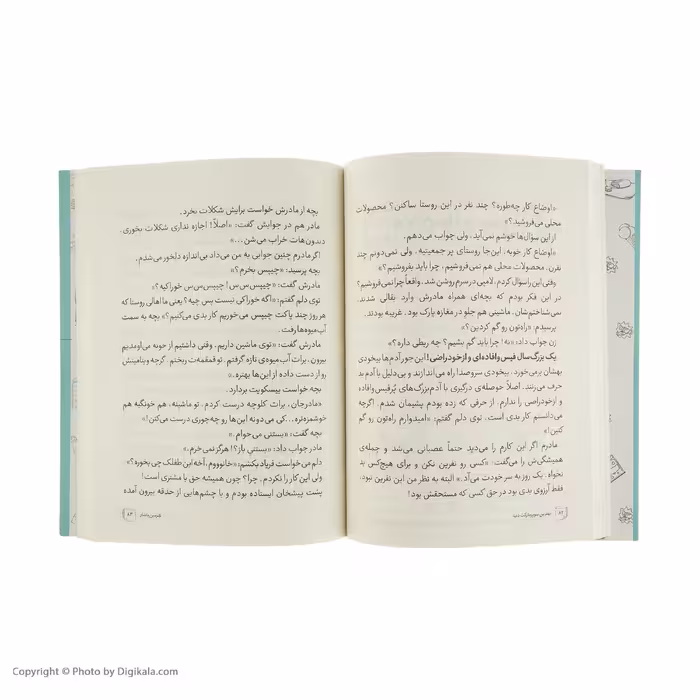 «اوضاع کار چه‌طوره؟ چند نفر در این روستا ساکنن؟ محصولات
محلی می‌فروشید؟»
از این سؤال‌ها خوشم نمی‌آید. ولی جواب می‌دهم.
«اوضاع کار خوبه. این‌جا روستای پر جمعیتیه. ولی نمی‌دونم چند
نفرن. محصولات محلی هم نمی‌فروشیم. چرا باید بفروشیم؟»
وقتی این را سؤال کردم، لامپی در سرم روشن شد. واقعاً چرا نمی‌فروشیم؟
در این فکر بودم که بچه‌ای همراه مادرش وارد بقالی شدند.
نمی‌شناختم‌شان. ماشینی هم جلو در مغازه پارک بود. غریبه بودند.
پرسیدم: «راه‌تون رو گم کردین؟»
زن جواب داد: «نه! چرا باید گم بشیم؟ چه ربطی داره؟»
یک بزرگ‌سال فیس‌وافاده‌ای و ازخودراضی! این جور آدم‌ها بیخودی
بهشان برمی‌خورد. بیخودی سروصدا راه می‌اندازند و بی‌دلیل با آدم بد
حرف می‌زنند. اصلاً حوصله‌ی درگیری با آدم‌بزرگ‌های پُرفیس‌وافاده
و ازخودراضی را ندارم. از حرفی که زده بودم پشیمان شدم. اگرچه
می‌دانستم کار بدی است، توی دلم گفتم: «امیدوارم راه‌تون رو گم
کنین!»
مادرم اگر این کارم را می‌دید حتماً عصبانی می‌شد و جمله‌ی
همیشگی‌ش را می‌گفت: «کسی رو نفرین نکن و برای هیچ‌کس بد
نخواه. یک روز به سر خودت می‌آد.» البته به نظر من این نفرین نبود.
فقط آرزوی بدی بود در حق کسی که مستحقش بود!
۸۲
بچه از مادرش خواست برایش شکلات بخرد.
مادر هم در جوابش گفت: «اصلاً! اجازه نداری شکلات بخوری.
دندون‌هات خراب می‌شن...»
اگر مادرم چنین جوابی به من می‌داد بی‌اندازه دلخور می‌شدم.
بچه پرسید: «چیپس بخرم؟»
مادرش گفت: «چیپس‌س‌س! چیپس‌س‌س خوراکیه؟»
توی دلم گفتم: «اگه خوراکی نیست پس چیه؟ یعنی ما اهالی روستا که
هر روز چند پاکت چیپس می‌خوریم کار بدی می‌کنیم؟» بچه به سمت
آب‌میوه‌ها رفت.
مادرش گفت: «توی ماشین داریم. وقتی داشتیم از خونه می‌اومدیم
بیرون، برات آب میوه‌ی تازه گرفتم. تو قمقمه‌ت ریختم. گرچه ویتامینش
رو از دست داده از این‌ها بهتره.»
بچه خواست بیسکویت بردارد.
«مادرجان، برات کلوچه درست کردم. تو ماشینه. هم خونگیه هم
خوشمزه‌تره...کی می‌دونه این‌ها رو چه‌جوری درست می‌کنن!»
بچه گفت: «بستنی می‌خوام.»
مادر جواب داد: «بستنیِ باز؟! هرگز نمی‌خرم.»
دلم می‌خواست فریاد بکشم: «خانوووم، آخه این طفلک چی بخوره؟»
ولی این کار را نکردم. چرا؟ چون همیشه حق با مشتری است!
پشت پیشخان ایستاده بودم و با چشم‌هایی از حدقه بیرون آمده
۸۳
Copyright © Photo by Digikala.com